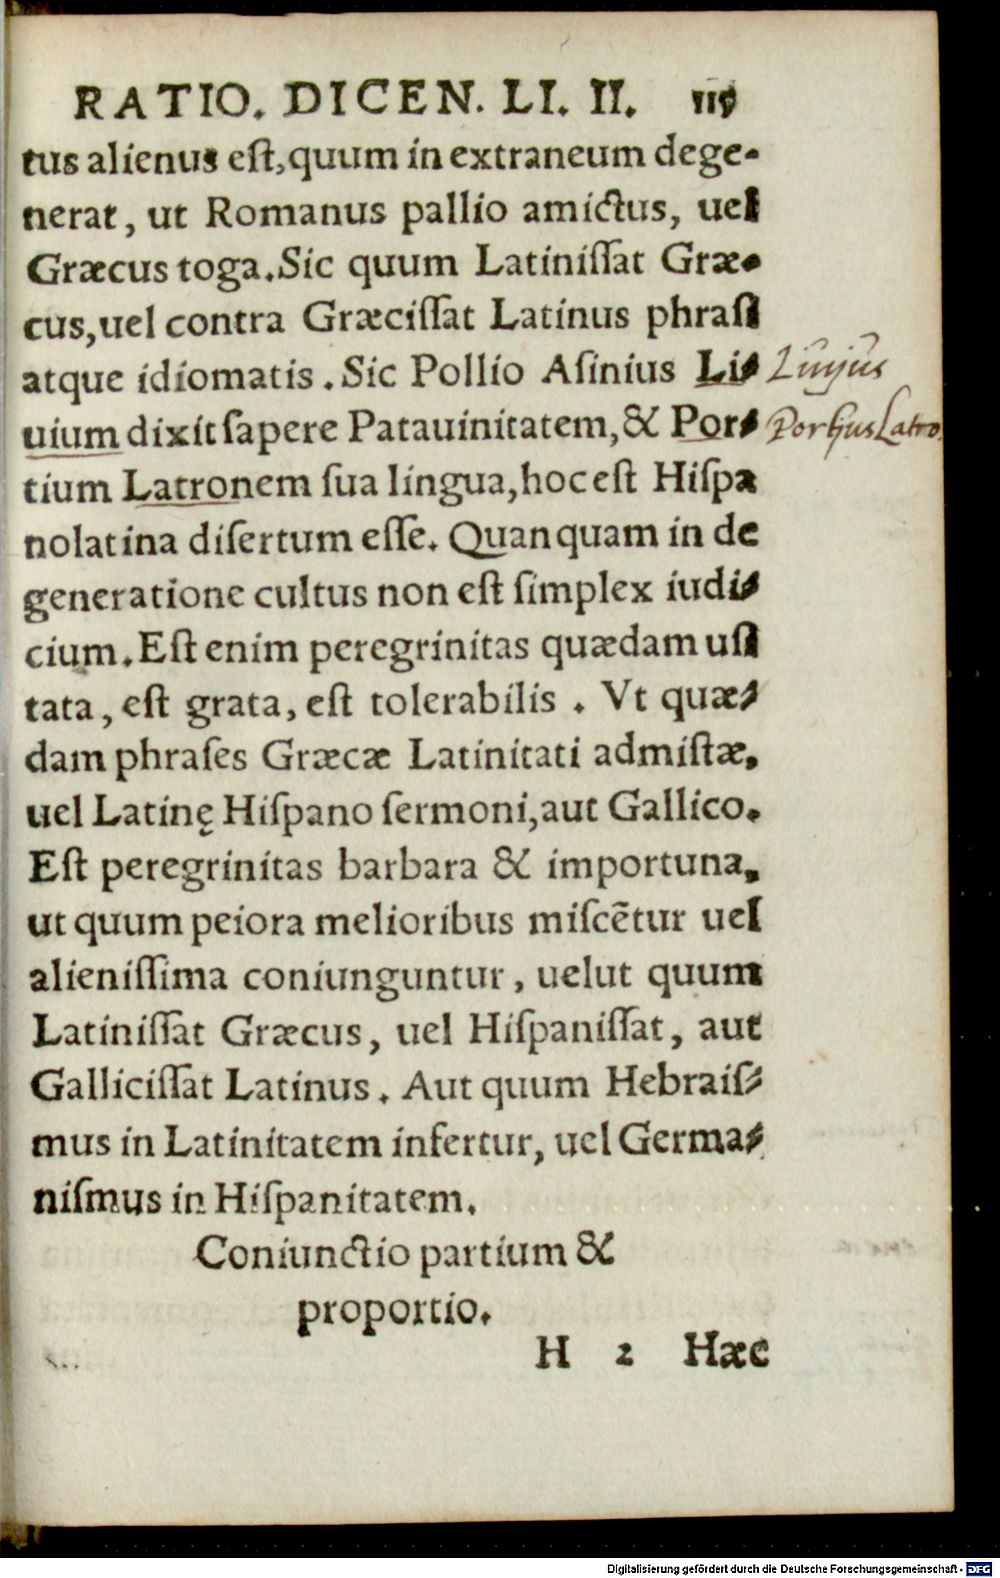 RATIO. DICEN. LI. II. 115
tus alienus eſt, quum in extraneum dege-
nerat, ut Romanus pallio amictus, uel
Græcus toga. Sic quum Latiniſſat Græ-
cus, uel contra Græciſſat Latinus phraſi
atque idiomatis. Sic Pollio Aſinius Li-
Liuijus
uium dixit ſapere Patauinitatem, & Por-
Portius Latro.
tium Latronem ſua lingua, hoc eſt Hiſpa
nolatina diſertum eſſe. Quanquam in de
generatione cultus non eſt ſimplex iudi-
cium. Eſt enim peregrinitas quædam uſi
tata, eſt grata, eſt tolerabilis. Vt quæ-
dam phraſes Græcæ Latinitati admiſtæ,
uel Latinę Hiſpano ſermoni, aut Gallico.
Eſt peregrinitas barbara & importuna,
ut quum peiora melioribus miſcētur uel
alieniſſima coniunguntur, uelut quum
Latiniſſat Græcus, uel Hiſpaniſſat, aut
Galliciſſat Latinus. Aut quum Hebraiſ-
mus in Latinitatem infertur, uel Germa-
niſmus in Hiſpanitatem.
Coniunctio partium &
proportio.
H 2 Hæc
Digitalisierung gefördert durch die Deutsche Forschungsgemeinschaft - DFG